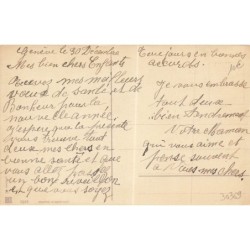 Genève le 30 Décembre
Mes bien chers Enfants
Recevez mes meilleurs
vœux de santé et de
Bonheur pour la
nouvelle année
j'espère que la présente
vous trouve tout
deux mes chers en
bonne santé et que
vous allez passer
un bon réveillon
et que vous soyez
toujours en bonne
accords.
Je vous embrasse
tout deux
bien tendrement
Votre Maman
qui vous aime et
pense souvent
à vous mes chers